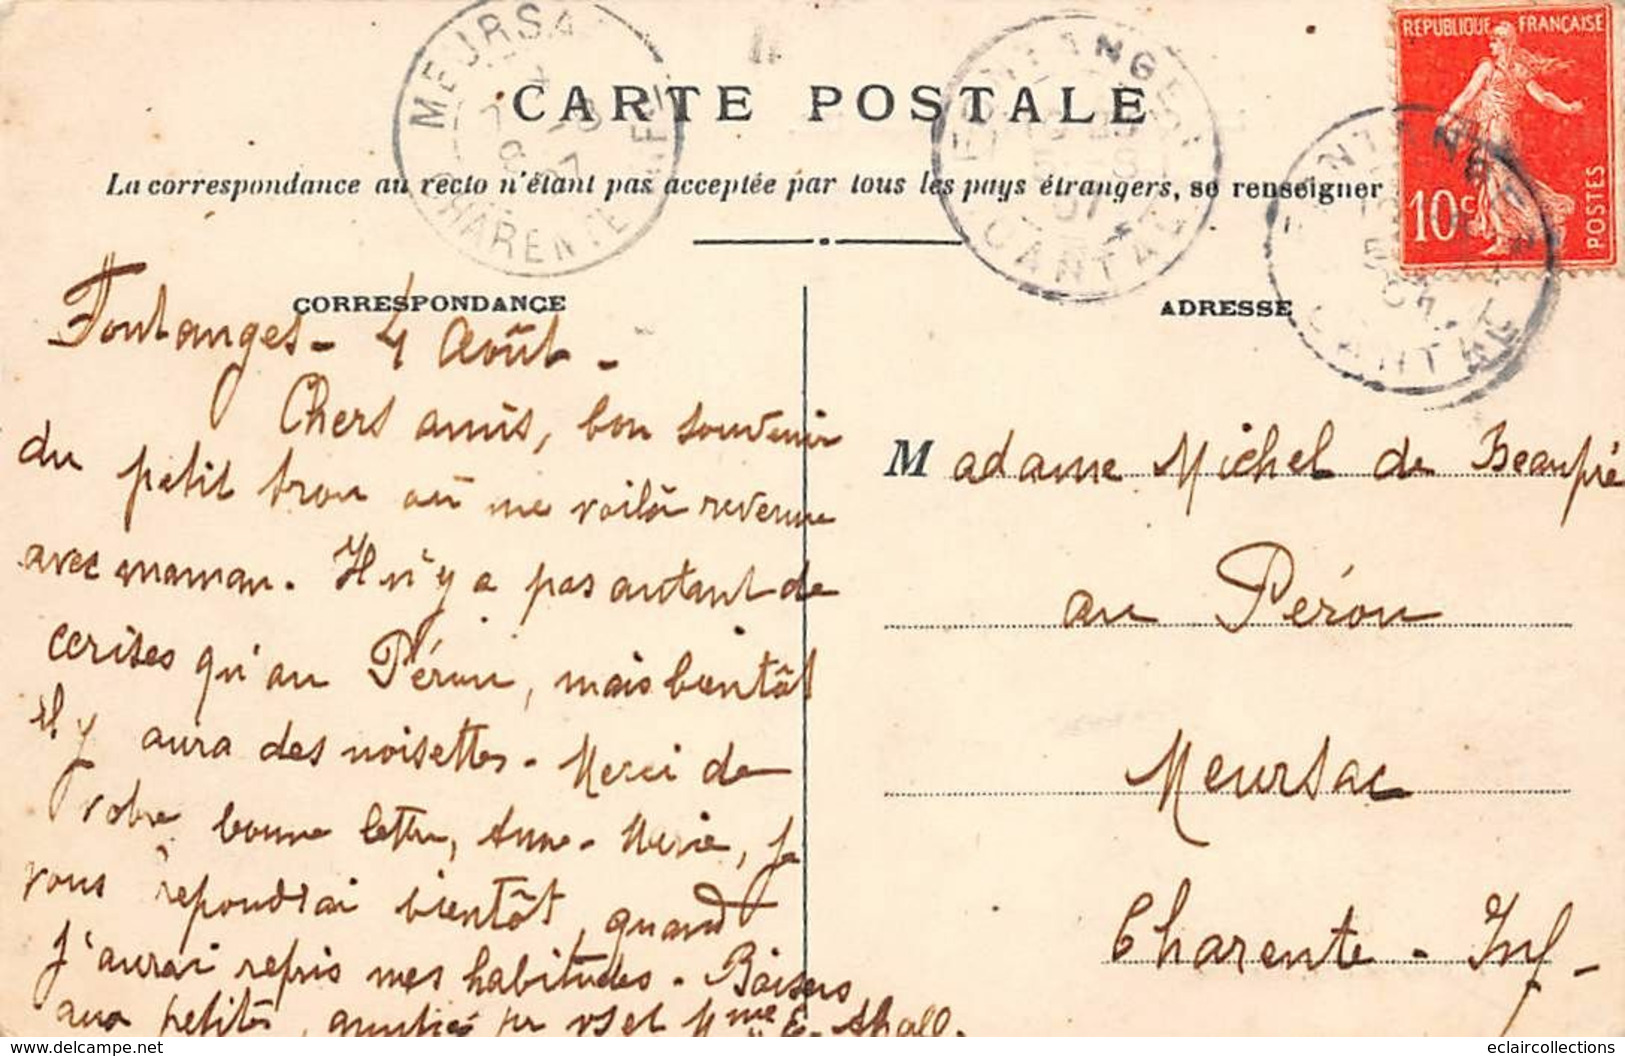 CARTE POSTALE
La correspondance au recto n'étant pas acceptée par tous les pays étrangers, se renseigner
CORRESPONDANCE
Fontanges - 4 Août -
Chers amis, bon souvenir
du petit trou où me voilà revenue
avec maman. Il n'y a pas autant de
cerises qu'au Pérou, mais bientôt
il y aura des noisettes. Merci de
votre bonne lettre, Anne-Marie, je
vous répondrai bientôt, quand
j'aurai repris mes habitudes. Baisers
aux petites, amitiés pr vs et Mme
ADRESSE
Madame Michel de Beaupré
au Pérou
Meursac
Charente - Inf -
REPUBLIQUE FRANÇAISE
10c
POSTES
MEURSAC
CHARENTE INFRE
FONTANGES
CANTAL
FONTANGES
CANTAL
www.delcampe.net
eclaircollections